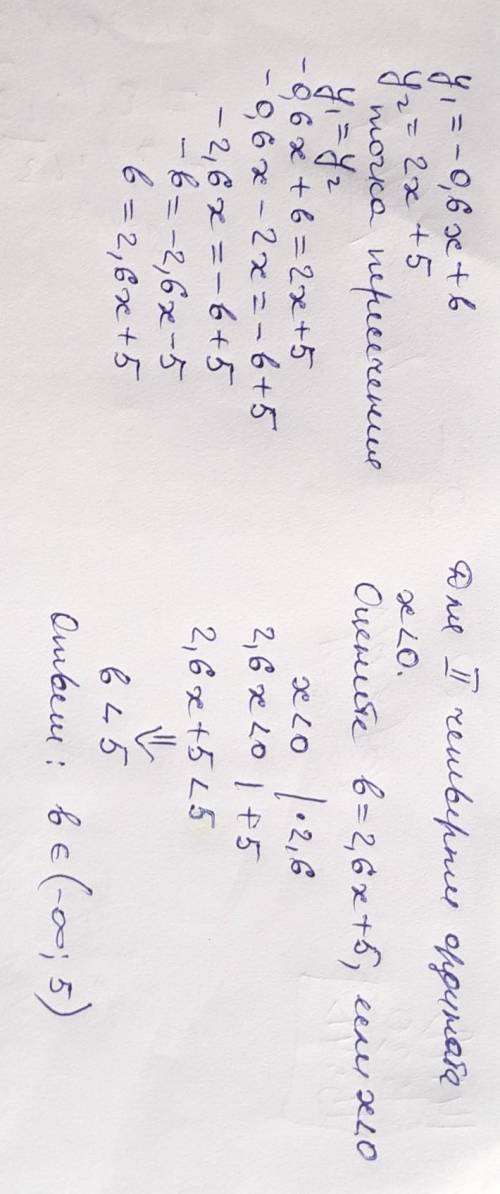 y₁ = -0,6x + b
y₂ = 2x + 5
точка пересечения
y₁ = y₂
-0,6x + b = 2x + 5
-0,6x - 2x = -b + 5
-2,6x = -b + 5
-b = -2,6x - 5
b = 2,6x + 5
Для II четверти ордината
x < 0.
Оцените b = 2,6x + 5, если x < 0
x < 0 | · 2,6
2,6x < 0 | + 5
2,6x + 5 < 5
⇓
b < 5
Ответ: b ∈ (-∞; 5)